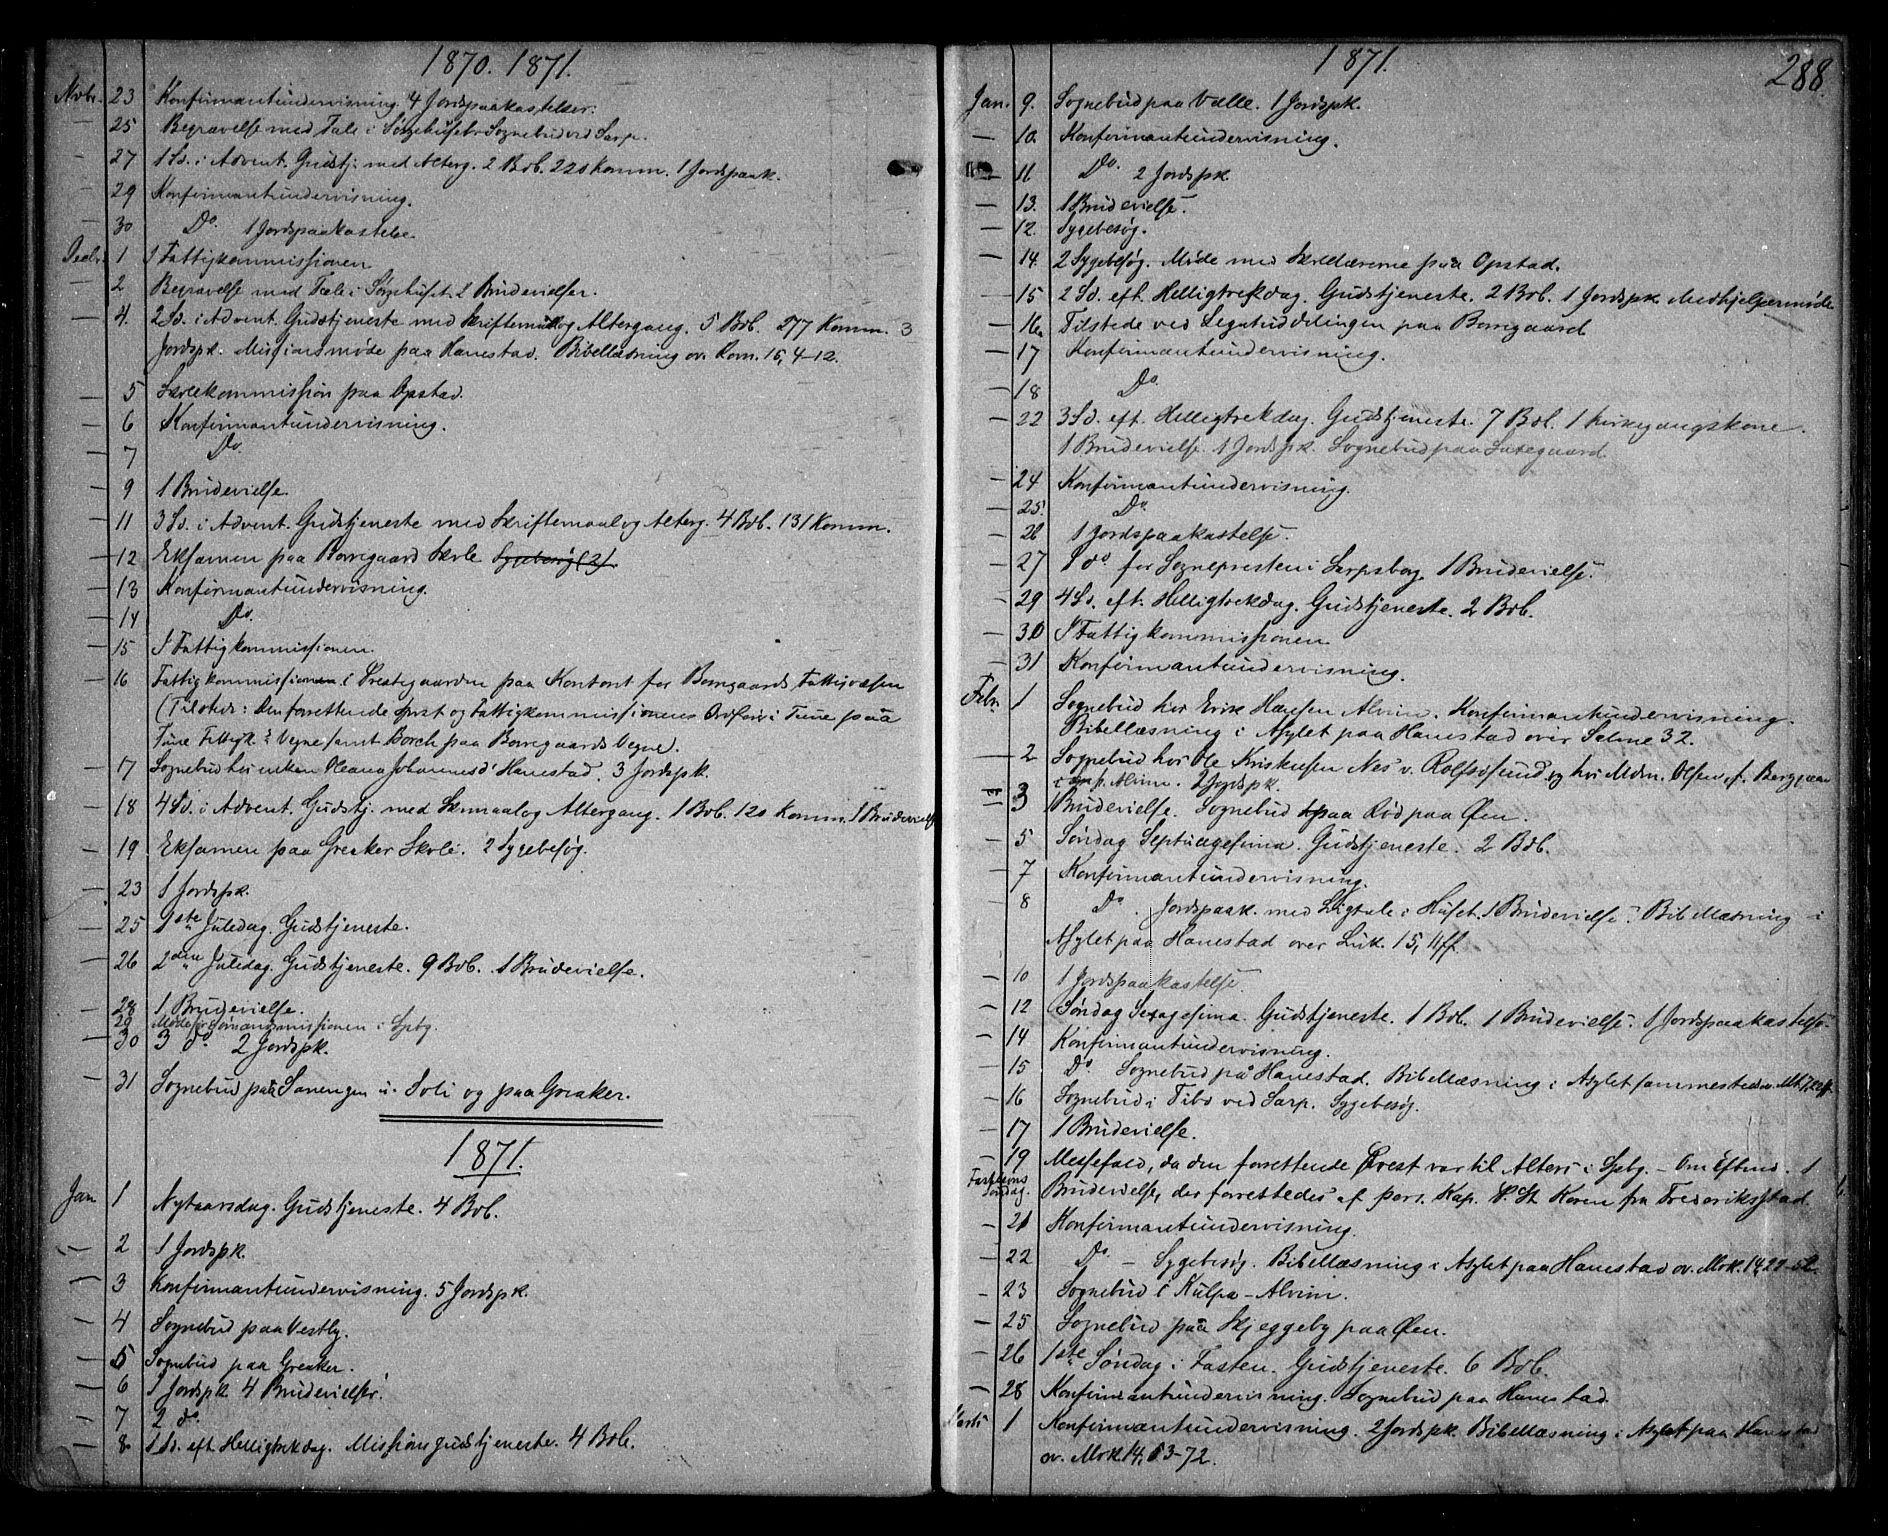 1870. 1871.
Novbr. 23 Konfirmantundervisning. 4 Jordspaakastelser.
— 25 Begravelse med Tale i Sørgehuset. Sognebud ved Sarp.
— 27 1 Sd. i Advent. Gudstj. med Alterg. 2 Bøb. 220 Komm. 1 Jordspaak.
— 29 Konfirmantundervisning.
— 30 Do. 1 Jordspaakastelse.
Decbr. 1 I Fattigkommissionen
2 Begravelse med Tale i Sørgehuset. 2 Brudevielser.
— 4. 2 Sd. i Advent. Gudstjeneste med Skriftemaal og Altergang. 5 Bøb. 277 Komm. 3
Jordspk. Missionsmøde paa Hanestad. Bibellæsning ov. Rom. 15, 4–12.
— 5 Skolekommission paa Opstad.
— 6 Konfirmantundervisning.
— 7 Do.
— 9 1 Brudevielse.
— 11 3 Sd. i Advent. Gudstjeneste med Skriftemaal og Alterg. 4 Bøb. 131 Komm.
— 12 Eksamen paa Borregaard Skole Sygebesøg (2).
— 13 Konfirmantundervisning.
— 14 Do.
— 15 I Fattigkommissionen.
— 16 Fattigkommissionen i Prestegaarden paa Kontoret for Borregaards Fattigvæsen
(Tilstede: Den forrettende Prest og Fattigkommissionens Ordfører i Tune paa
Tune Fattigk.s Vegne samt Borch paa Borregaards Vegne).
— 17 Sognebud hos Enken Oleana Johannesd. Hanestad. 3 Jordspk.
— 18 4 Sd. i Advent. Gudstj. med Skmaal og Altergang. 1 Bøb. 120 Komm. 1 Brudevielse
— 19 Eksamen paa Greaker Skole. 2 Sygebesøg.
— 23 1 Jordspk.
— 25 1ste Juledag. Gudstjeneste.
— 26 2den Juledag. Gudstjeneste. 9 Bøb. 1 Brudevielse.
— 28 1 Brudevielse.
29 Møde i Kommissionen i Spbg.
— 30 3 do. 2 Jordspk.
— 31 Sognebud paa Sanengen u. Soli og paa Greaker.
1871.
Jan 1 Nytaarsdag. Gudstjeneste. 4 Bøb.
— 2 1 Jordspk.
— 3 Konfirmantundervisning. 5 Jordspk.
— 4 Sognebud paa Vestby.
— 5 Sognebud paa Greaker.
— 6 1 Jordspk 4 Brudevielser.
— 7 2 do.
— 8 1 Sd. eft. Helligtrekdag. Missionsgudstjeneste. 4 Bøb.
1871.
288.
Jan. 9. Sognebud paa Valle. 1 Jordspk.
— 10. Konfirmantundervisning.
— 11. Do. 2 Jordspk.
— 13. 1 Brudevielse.
— 12. Sygebesøg.
— 14. 2 Sygebesøg. Møde med Skolelærerne paa Opstad.
— 15 2 Sd. eft. Helligtrekdag. Gudstjeneste. 2 Bøb. 1 Jordspk. Medhjelpermøde
— 16 Tilstede ved Legatuddelingen paa Borregaard
— 17 Konfirmantundervisning.
— 18 Do.
— 22 3 Sd. eft. Helligtrekdag. Gudstjeneste. 7 Bøb. 1 Kirkegangskone.
1 Brudevielse. 1 Jordspk. Sognebud paa Laxegaard
— 24 Konfirmantundervisning.
— 25. Do.
— 26 1 Jordspaakastelse.
— 27 1 do. for Sognepresten i Sarpsborg. 1 Brudevielse.
— 29 4 Sd. eft. Helligtrekdag. Gudstjeneste. 2 Bøb.
— 30 I Fattigkommissionen.
— 31 Konfirmantundervisning.
Febr. 1 Sognebud hos Erik Hansen Alvim. Konfirmantundervisning.
Bibellæsning i Asylet paa Hanestad over Salme 32.
— 2 Sognebud hos Ole Kriskesen Nes v. Rolfsøsund og hos Mdm. Olsen f. Berg paa
Alvim. 2 Jordspk.
— 3 1 Brudevielse. Sognebud paa Rød paa Øen.
— 5 Søndag Septuagesima. Gudstjeneste. 2 Bøb.
— 7 Konfirmantundervisning.
— 8 Do. Jordspaak. med Ligtale i Huset. 1 Brudevielse. Bibellæsning i
Asylet paa Hanestad over Luk. 15, 11ff.
— 10 1 Jordspaakastelse.
— 12 Søndag Sexagesima. Gudstjeneste. 1 Bøb. 1 Brudevielse. 1 Jordspaakastelse.
— 14 Konfirmantundervisning.
— 15 Do. Sognebud på Hanestad. Bibellæsning i Asylet sammesteds ov. Mt 7,
— 16 Sognebud i Tibo ved Sarp. Sygebesøg.
— 17 1 Brudevielse.
— 19 Messefald, da den forrettende Prest var til Alters i Spbg. – Om Efterm. 1
Fastelavns Søndag. Brudevielse, der forrettedes af pers. Kap. P. St. Koren fra Frederiksstad.
— 21 Konfirmantundervisning.
— 22 Do. – Sygebesøg. Bibellæsning i Asylet paa Hanestad ov. Mrk. 14, 27–52.
— 23 Sognebud i Kulpe–Alvim.
— 25 Sognebud paa Skjeggeby paa Øen.
— 26 1ste Søndag i Fasten. Gudstjeneste. 6 Bøb.
— 28 Konfirmantundervisning. Sognebud paa Hanestad
Marts 1 Konfirmantundervisning. 2 Jordspk. Bibellæsning i Asylet paa Hanestad
ov. Mrk. 14, 53–72.